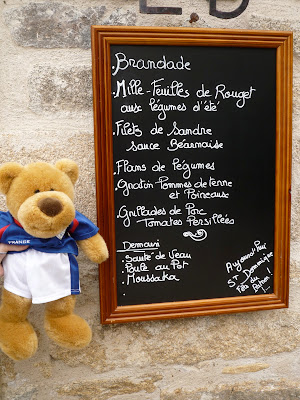 ED
. Brandade
. Mille-Feuilles de Rouget
aux légumes d'été
. Filets de Sandre
sauce Béarnaise
. Flans de légumes
Gratin-Pommes de terre
et Poireaux
. Grillades de Porc
Tomates Persillées
Demain
. Sauté de Veau
. Poule au Pot
. Moussaka
Aujourd'hui
ST Dominique
Fête du
Patron !
FRANCE